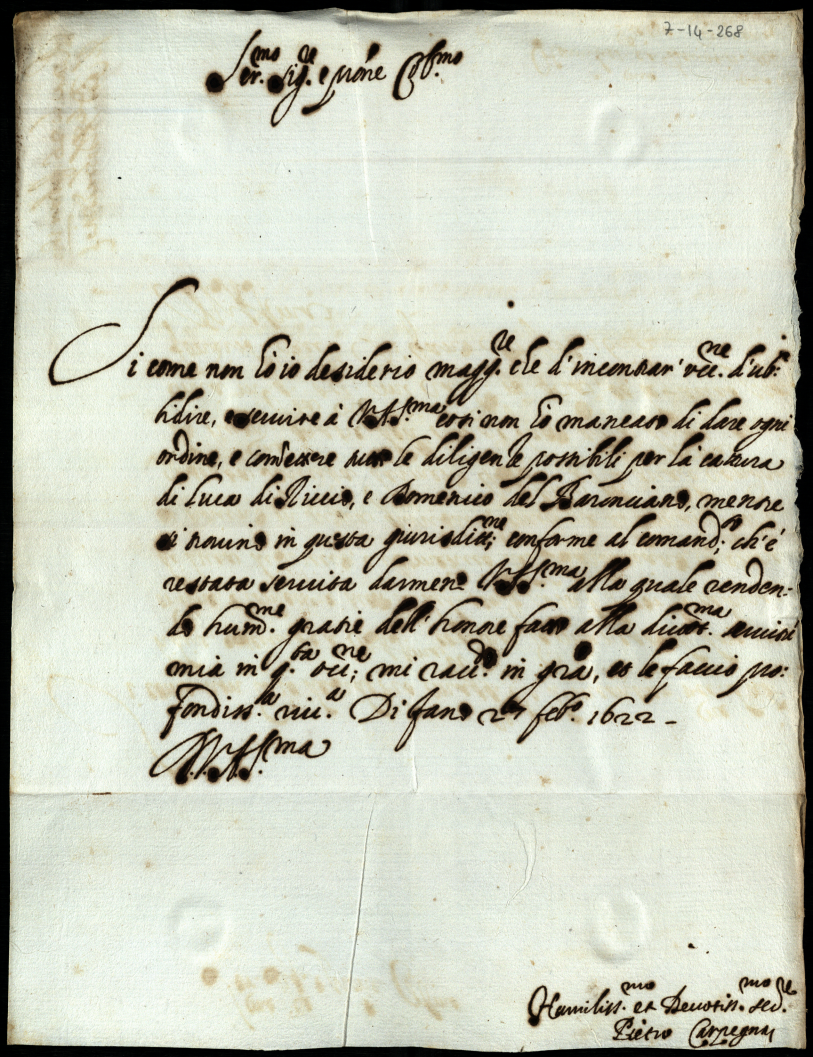 7-14-268
Ser.mo Sig.re e p̃rone Col.mo
Si come non hò io desiderio magg.re che d'incontrar' occ.ne d'ub:
bidire, e servire à V.A.S.ma così non hò mancato di dare ogni
ordine, e comettere tutte le diligenze possibili per la cattura
di Luca di Riccio, e Domenico del Baronciano, mentre
si trovino in questa giurisditt.ne; conforme al comand.to; ch'è
restata servita darmene V.A.S.ma alla quale renden-
do hum.me gratie dell'honore fatto alla divot.ma servitù
mia in q.ta occ.ne; mi racc.do in gr̃a, et le faccio pro:
fondiss.a riv.a Di Fano 27 feb.o 1622 -
D.V.A.S.ma
Humiliss.mo et Devotiss.mo Ser.re
Pietro Carpegna